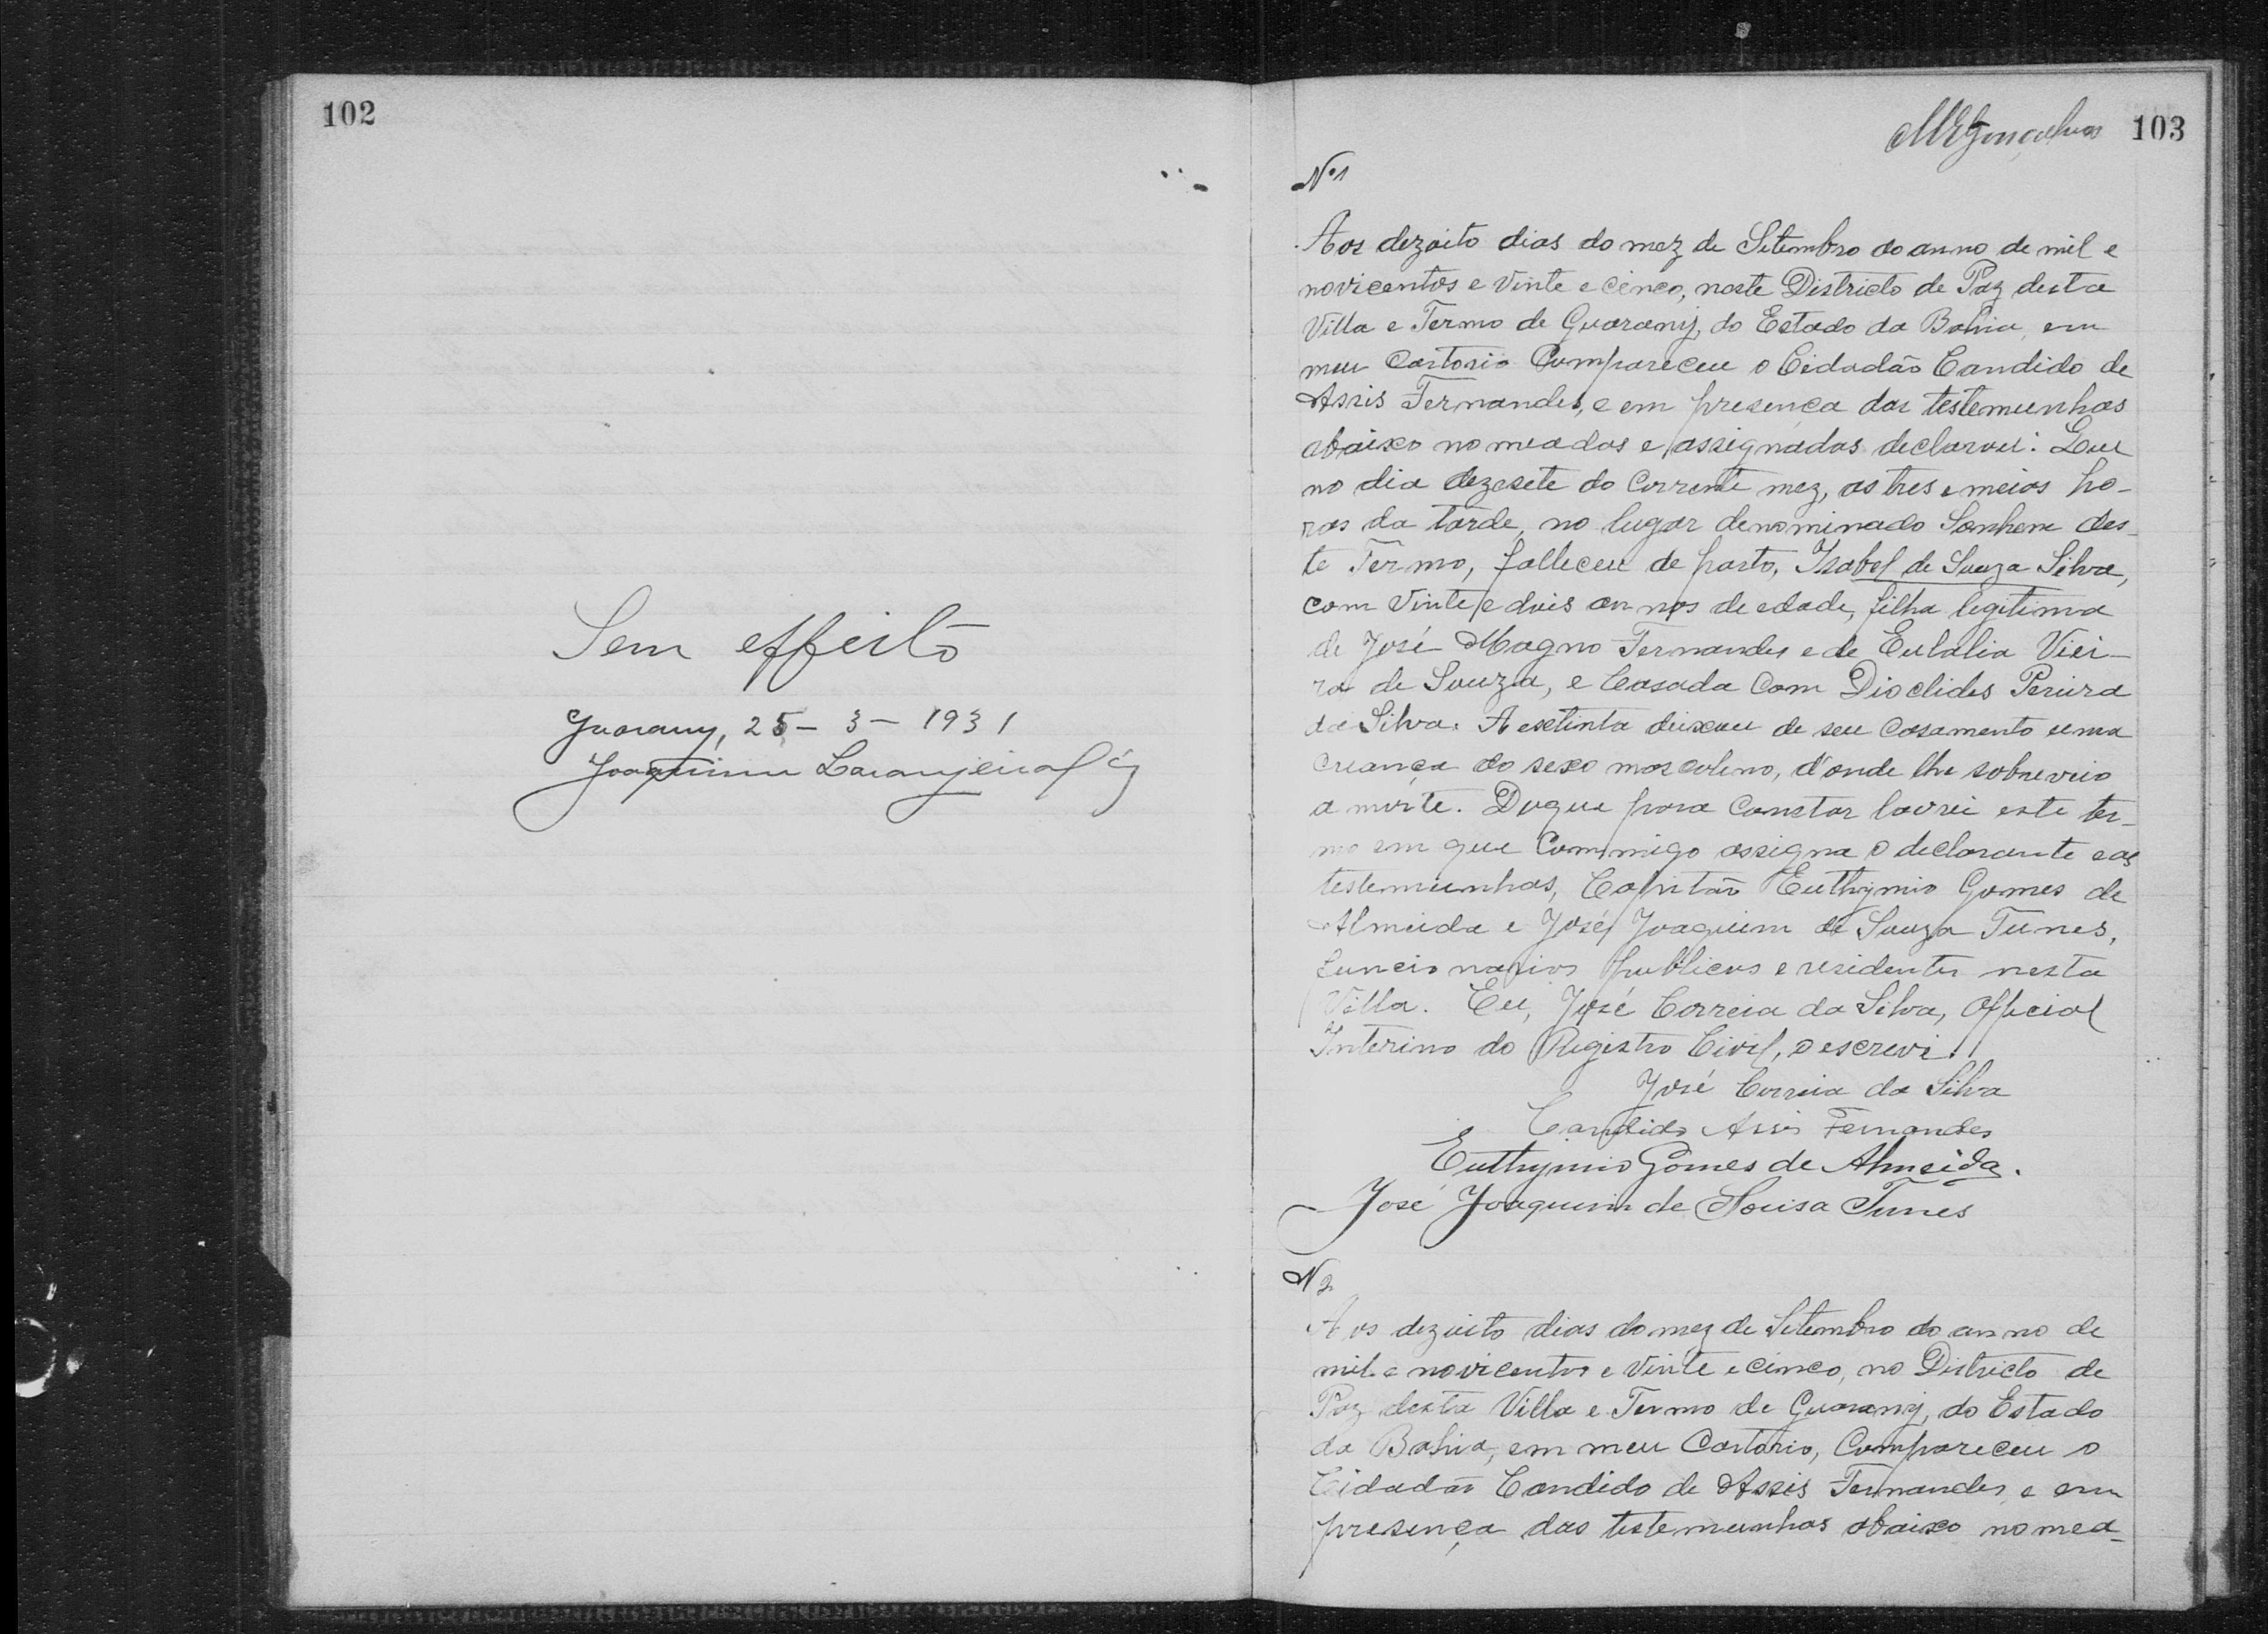 102
Sem effeito
Guarany, 25 - 3 - 1931
Joaquim Laranjeira
MRGonçalves 103
Nº 1
Aos dezoito dias do mez de Setembro do anno de mil e
novicentos e vinte e cinco, neste Districto de Paz desta
Villa e Termo de Guarany, do Estado da Bahia, em
meu Cartorio Compareceu o Cidadão Candido de
Assis Fernandes, e em presença das testemunhas
abaixo nomeadas e assignadas declarou: Que
no dia dezesete do Corrente mez, as tres e meias ho-
ras da tarde, no lugar denominado Sonhem des-
te Termo, falleceu de parto, Isabel de Souza Silva,
com vinte e dois annos de edade, filha legitima
de José Magno Fernandes e de Eulalia Viei-
ra de Souza, e Casada Com Dioclides Pereira
da Silva. A extinta deixou de seu Casamento uma
Criança do sexo masculino, d'onde lhe sobreveio
a morte. Do que para Constar lavrei este ter-
mo em que Commigo assigna o declarante e as
testemunhas, Capitão Euthymio Gomes de
Almeida e José Joaquim de Souza Tunes,
funcionarios publicos e residentes nesta
Villa. Eu, José Correia da Silva, Official
Interino do Registro Civil, o escrevi.
José Correia da Silva
Candido Assis Fernandes
Euthymio Gomes de Almeida.
José Joaquim de Sousa Tunes
N 2
Aos dezoito dias do mez de Setembro do anno de
mil e novicentos e vinte e cinco, no Districto de
Paz desta Villa e Termo de Guarany, do Estado
da Bahia, em meu Cartorio, Compareceu o
Cidadão Candido de Assis Fernandes, e em
presença das testemunhas abaixo nomea-